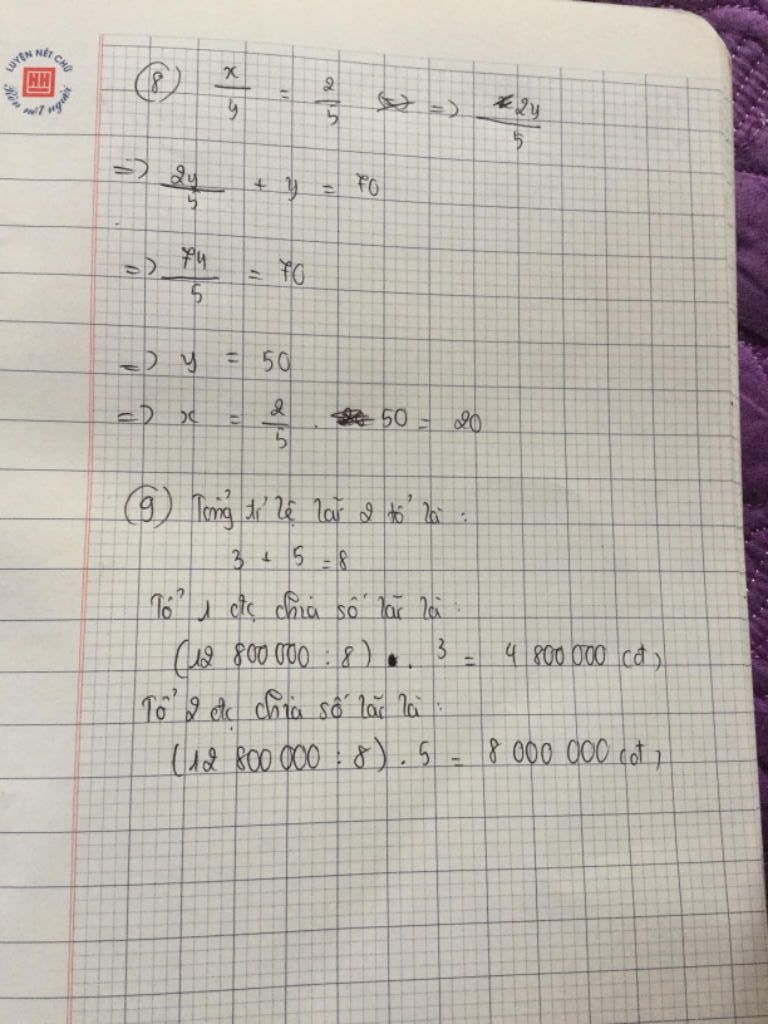 LUYỆN NÉT CHỮ
HH
Rèn nết người
(8) x/y = 2/5 => 2y/5
=> 2y/5 + y = 70
=> 7y/5 = 70
=> y = 50
=> x = 2/5 . 50 = 20
(9) Tổng tỉ lệ lãi 2 tổ là :
3 + 5 = 8
Tổ 1 đc chia số lãi là :
(12 800 000 : 8) . 3 = 4 800 000 (đ)
Tổ 2 đc chia số lãi là :
(12 800 000 : 8) . 5 = 8 000 000 (đ)